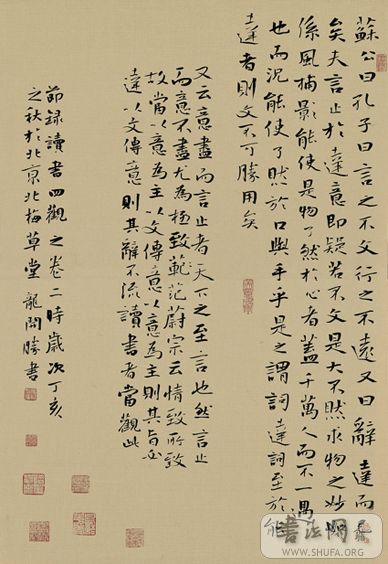 蘇公曰孔子曰言之不文行之不遠又曰辭達而已
矣夫言止於達意即疑若不文是大不然求物之妙如
係風捕影能使是物了然於心者蓋千萬人而不一遇
也而況能使了然於口與手乎是之謂詞達詞至於能
達者則文不可勝用矣
又云意盡而言止者天下之至言也然言止
而意不盡尤為極致範范蔚宗云情致所致
故當以意為主以文傳意以意為主則其旨必
達以文傳意則其辭不流讀書者當觀此
節録讀書四觀之卷二時歲次丁亥
之秋於北京北梅草堂龍開勝書
WWW.SHUFA.ORG